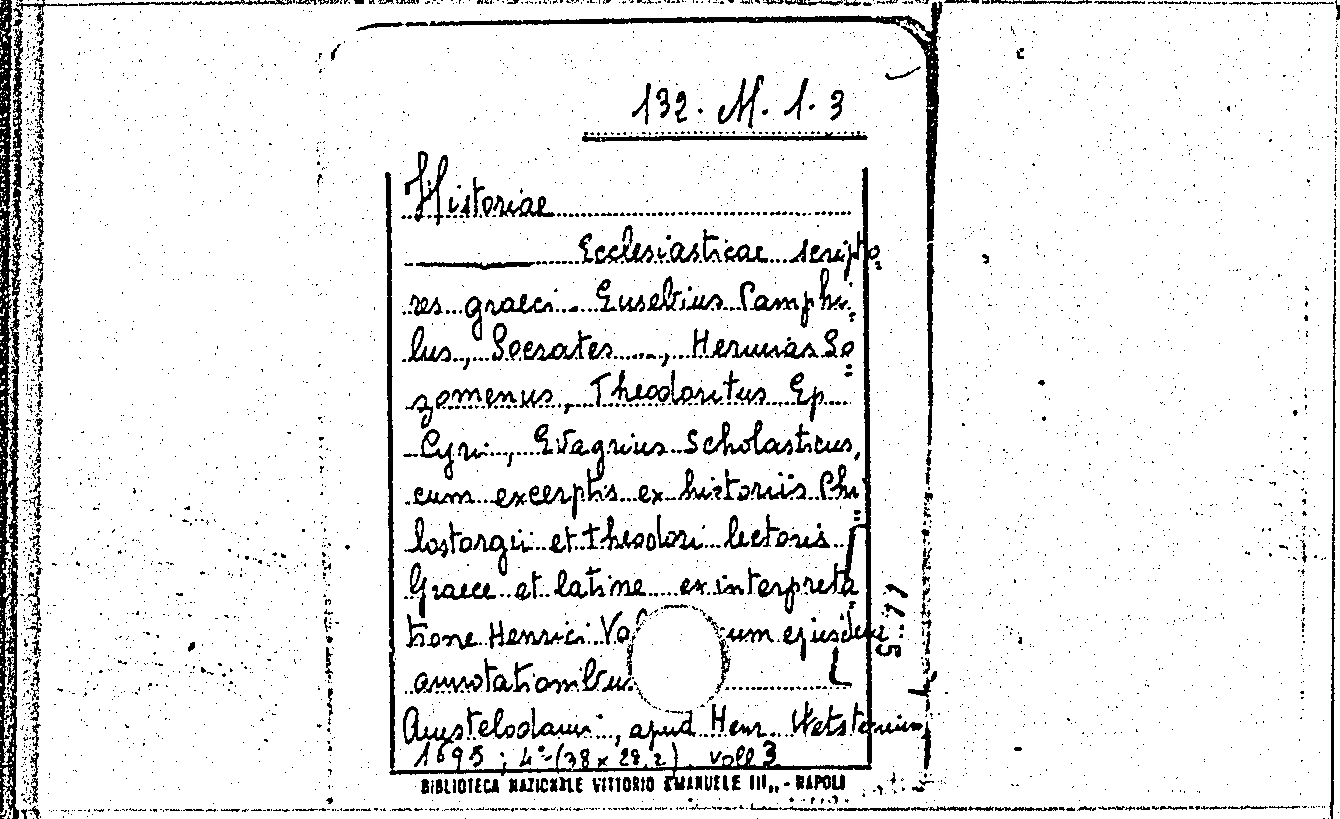 132. M. 1. 3
Historiae
Ecclesiasticae scripto=
res graeci. Eusebius Pamphi=
lus, Socrates ..., Hermias So=
zomenus, Theodoritus Ep.
Cyri, Evagrius Scholasticus,
cum excerptis ex historiis Phi=
lostorgii et Theodori lectoris
Graece et latine ex interpreta=
tione Henrici Va um ejusdem
annotationibus
Amstelodami, apud Henr. Wetstenium,
1695; 4° (38 x 22,2). voll 3
BIBLIOTECA NAZIONALE VITTORIO EMANUELE III,, - NAPOLI